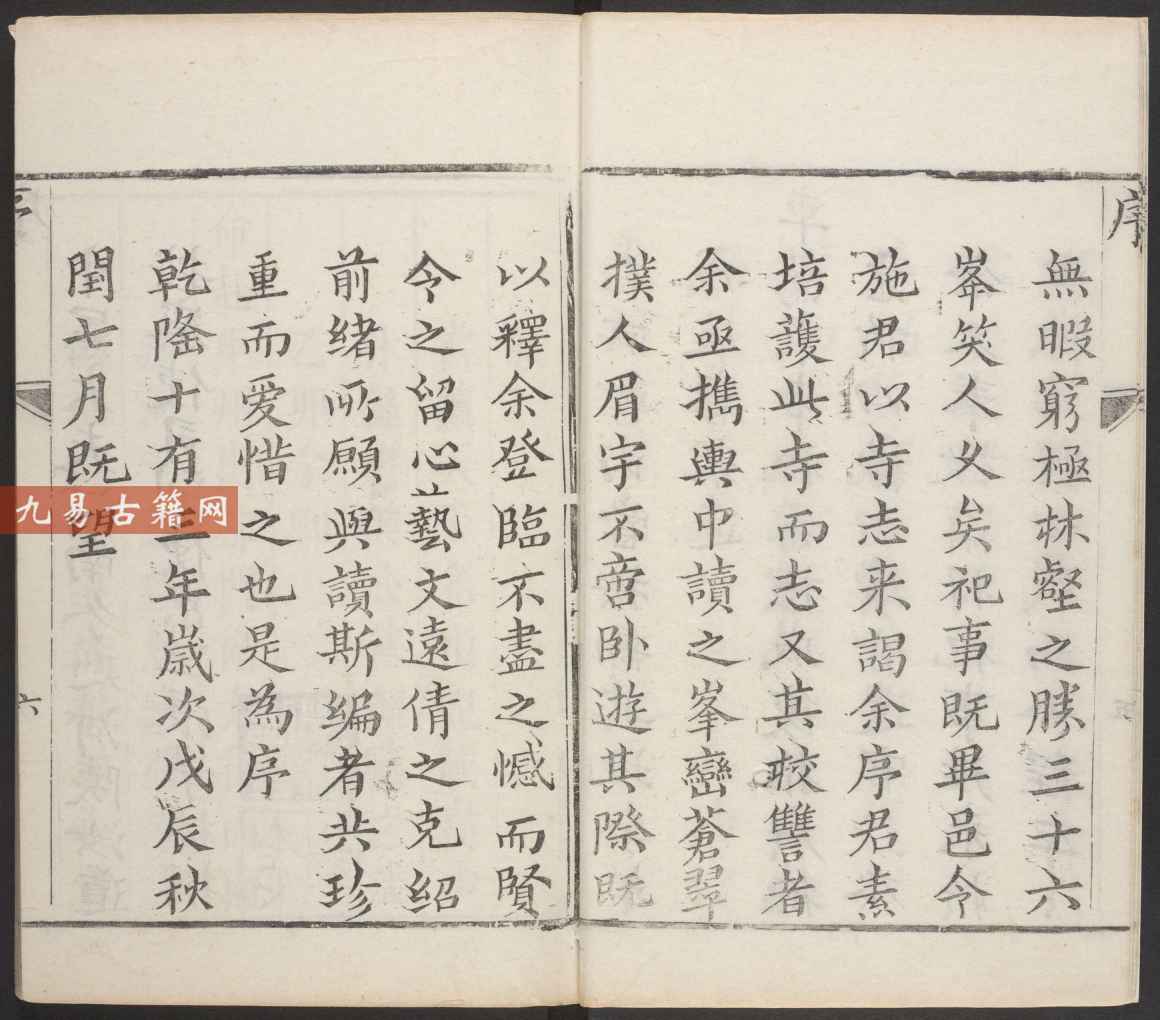 序
無暇窮極林壑之勝三十六
峯笑人乆矣祀事既畢邑令
施君以寺志来謁余序君素
培護此寺而志又其校讐者
余亟攜輿中讀之峯巒蒼翠
撲人眉宇不啻卧遊其際既
以釋余登臨不盡之憾而賢
令之留心藝文遠倩之克紹
前緒所願與讀斯編者共珍
重而愛惜之也是為序
乾隆十有三年歲次戊辰秋
閏七月既望
六
九易古籍网